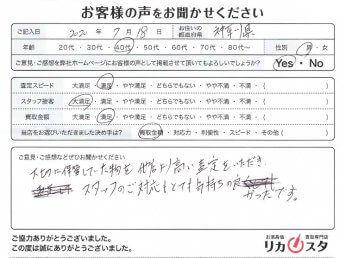 お客様の声をお聞かせください
ご記入日 2021年 7月 18日 お住いの都道府県 神奈川県
年齢 20代・30代・40代・50代・60代・70代・80代〜 性別 男・女
ご意見・ご感想を弊社ホームページにお客様の声として掲載させて頂いてもよろしいでしょうか? Yes・No
査定スピード 大満足・満足・やや満足・どちらでもない・やや不満・不満・(
スタッフ接客 大満足・満足・やや満足・どちらでもない・やや不満・不満・(
買取金額 大満足・満足・やや満足・どちらでもない・やや不満・不満・(
当店をお選びいただきました決め手は? 買取金額・対応力・利便性・スピード・その他(
ご意見・ご感想などぜひお聞かせください
大切に保管していた物を他店より高い査定をいただき
スタッフのご対応もとても気持ちの良
かったです。
ご協力ありがとうございました。
この度は誠にありがとうございました。
お酒高価買取専門店
リカスタ